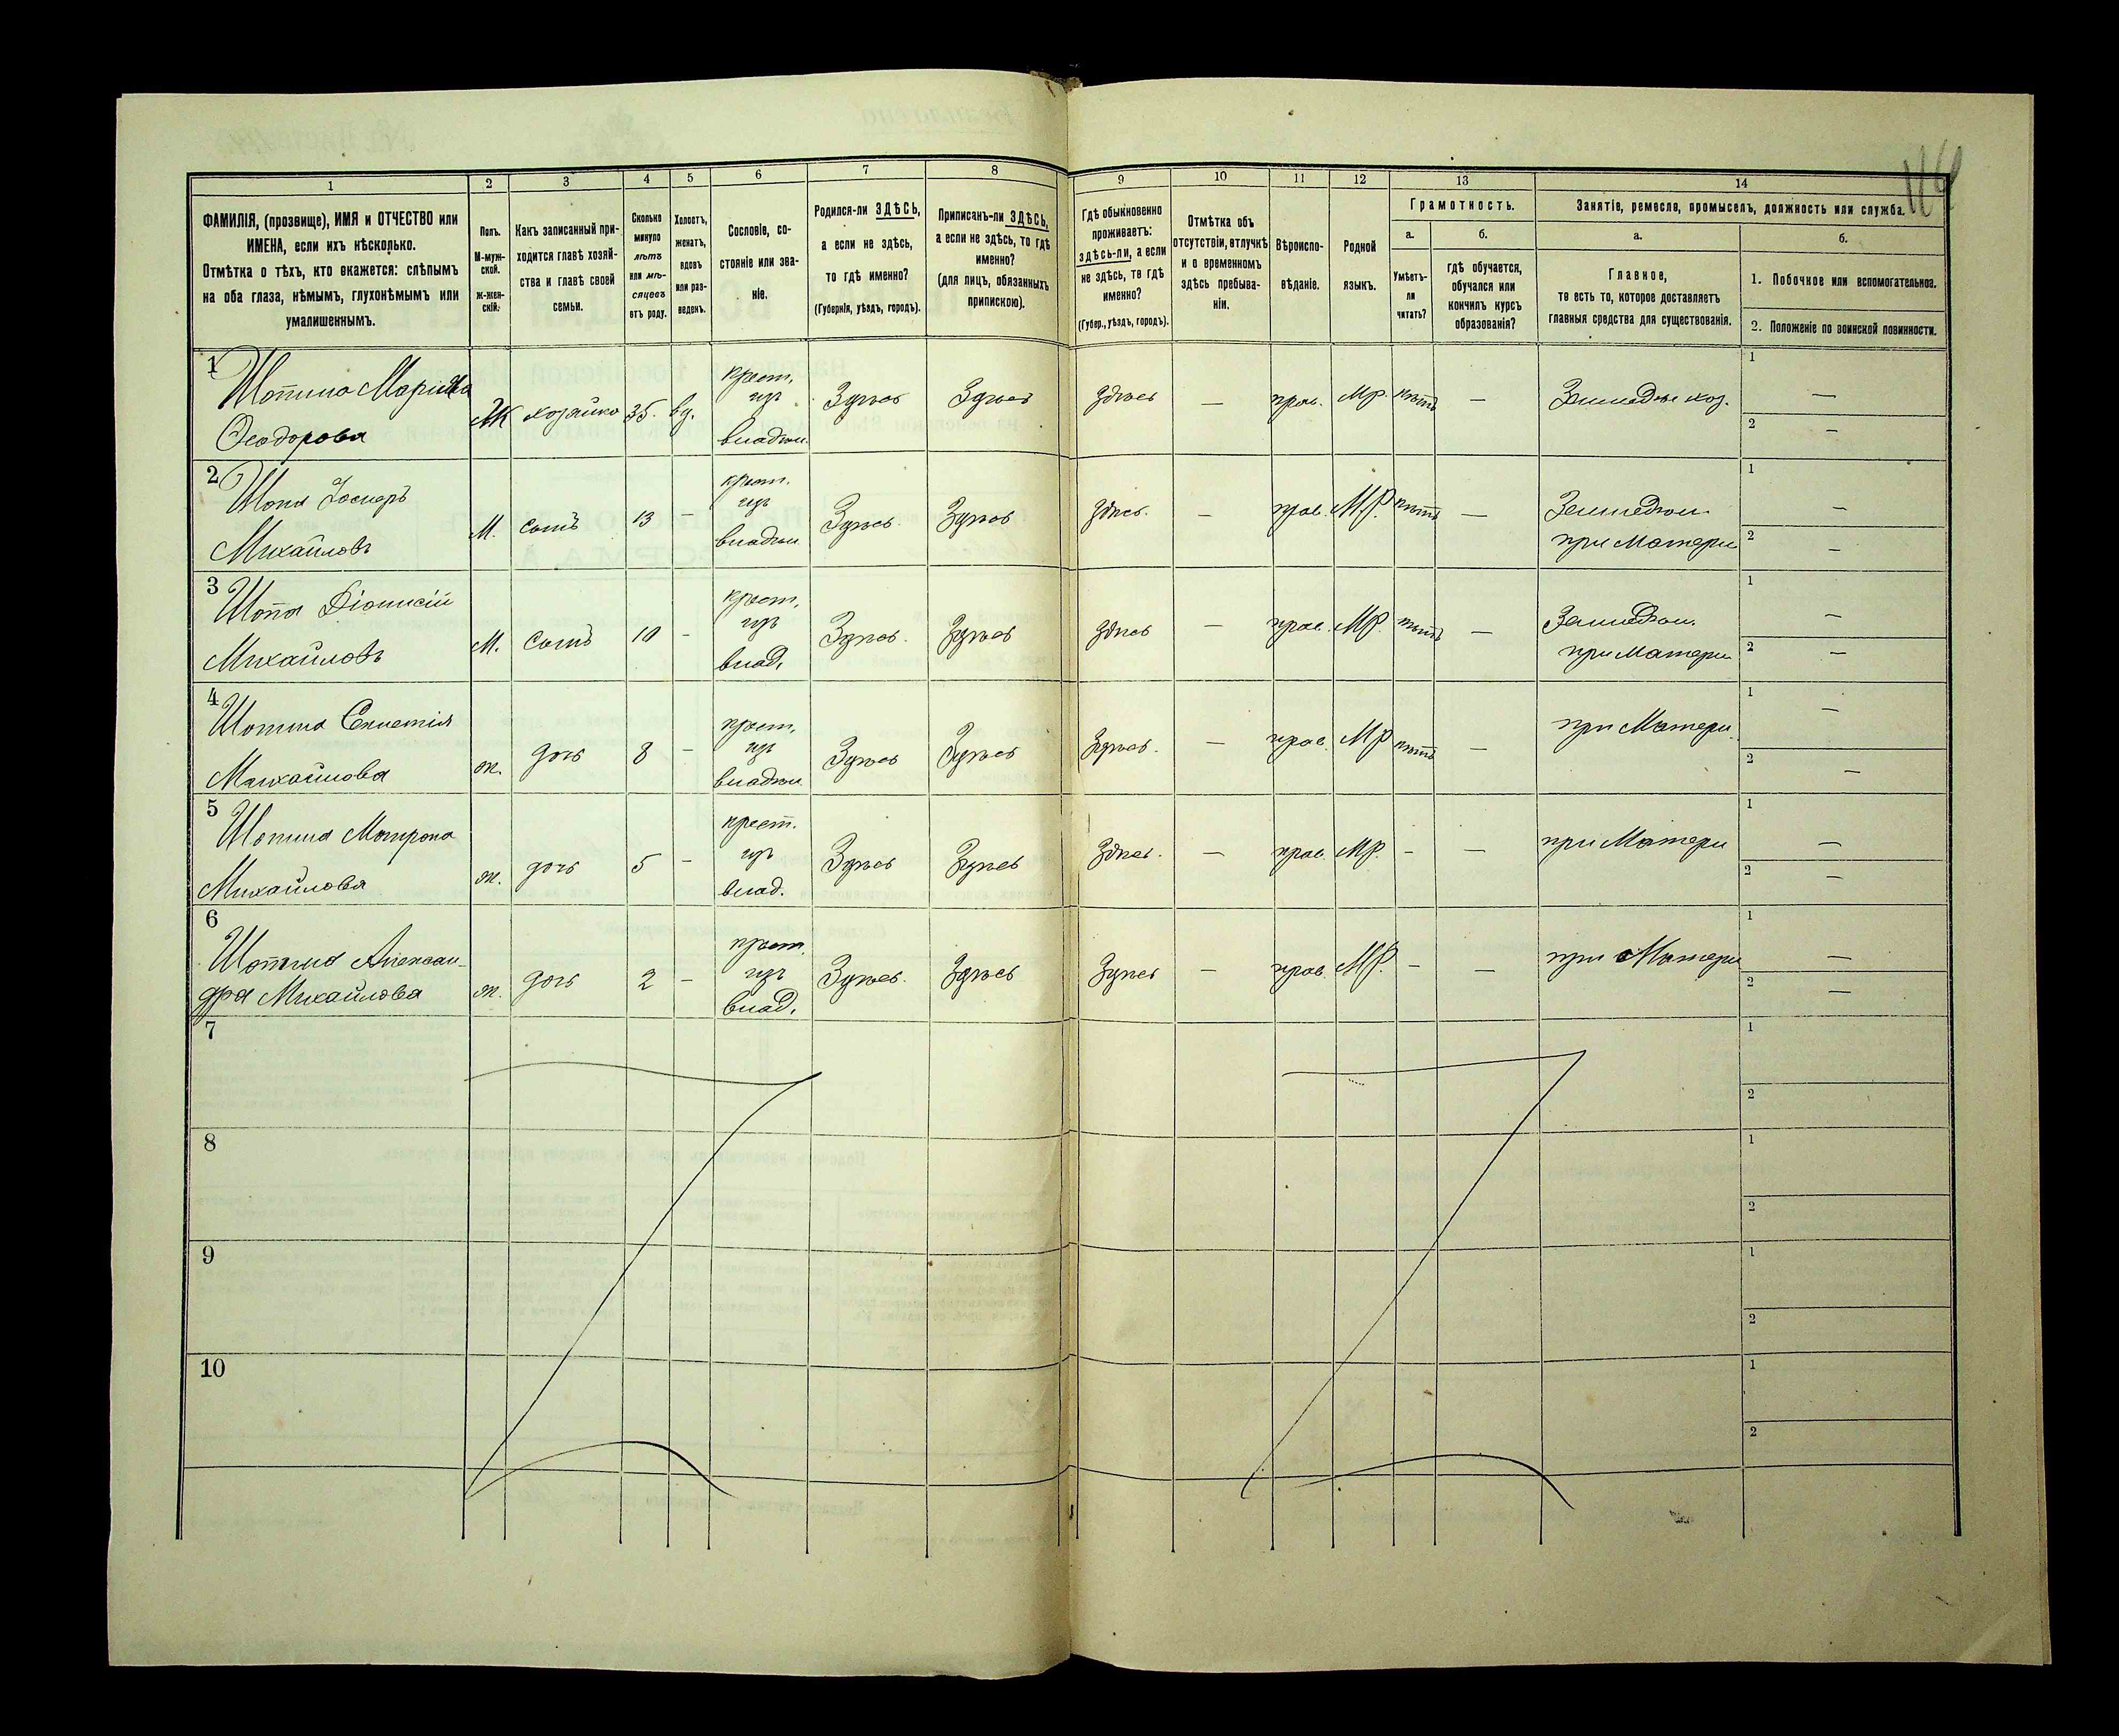 116
1 2 3 4 5 6 7 8 9 10 11 12 13 14
ФАМИЛІЯ, (прозвище), ИМЯ и ОТЧЕСТВО или
ИМЕНА, если ихъ нѣсколько.
Отмѣтка о тѣхъ, кто окажется: слѣпымъ
на оба глаза, нѣмымъ, глухонѣмымъ или
умалишеннымъ.
Полъ.
М-муж-
ской.
ж-жен-
скій.
Какъ записанный при-
ходится главѣ хозяй-
ства и главѣ своей
семьи.
Сколько
минуло
лѣтъ
или мѣ-
сяцевъ
отъ роду.
Холостъ,
женатъ,
вдовъ
или раз-
веденъ.
Сословіе, со-
стояніе или зва-
ніе.
Родился-ли ЗДѢСЬ,
а если не здѣсь,
то гдѣ именно?
(Губернія, уѣздъ, городъ).
Приписанъ-ли ЗДѢСЬ,
а если не здѣсь, то гдѣ
именно?
(для лицъ, обязанныхъ
припискою).
Гдѣ обыкновенно
проживаетъ:
здѣсь-ли, а если
не здѣсь, то гдѣ
именно?
(Губер., уѣздъ, городъ).
Отмѣтка объ
отсутствіи, отлучкѣ
и о временномъ
здѣсь пребыва-
ніи.
Вѣроиспо-
вѣданіе.
Родной
языкъ.
Грамотность.
а.
Умѣетъ-
ли
читать?
б.
гдѣ обучается,
обучался или
кончилъ курсъ
образованія?
Занятіе, ремесло, промыселъ, должность или служба.
а.
Главное,
то есть то, которое доставляетъ
главныя средства для существованія.
б.
1. Побочное или вспомогательное.
2. Положеніе по воинской повинности.
1
Шопина Марина
Ѳеодорова
Ж хозяйка 35. вд.
крест.
изъ
владѣл.
Здѣсь Здѣсь здѣсь — прав. Мр. нѣтъ — Земледѣл хоз.
1 —
2 —
2
Шопа Іосифъ
Михайловъ
М. сынъ 13 —
крест.
изъ
владѣл
Здѣсь. Здѣсь здѣсь. — прав. МР. нѣтъ — Земледѣл.
при Матери
1 —
2 —
3
Шопа Діонисій
Михайловъ
М. Сынъ 10 —
крест.
изъ
влад.
Здѣсь. Здѣсь здѣсь — прав. МР. нѣтъ — Земледѣл.
при Матери
1 —
2 —
4
Шопина
Михайлова
ж. дочь 8 —
крест.
изъ
владѣл
Здѣсь Здѣсь Здѣсь. — прав. МР нѣтъ — при Матери.
1 —
2 —
5
Шопина Матрона
Михайлова
ж. дочь 5 —
крест.
изъ
влад.
Здѣсь Здѣсь Здѣсь. — прав. МР. — — при Матери
1 —
2 —
6
Шопина Алексан-
дра Михайлова
ж. дочь 2 —
крест.
изъ
влад.
Здѣсь. Здѣсь Здѣсь — прав. МР. — — при Матери
1 —
2 —
7
1
2
8
1
2
9
1
2
10
1
2